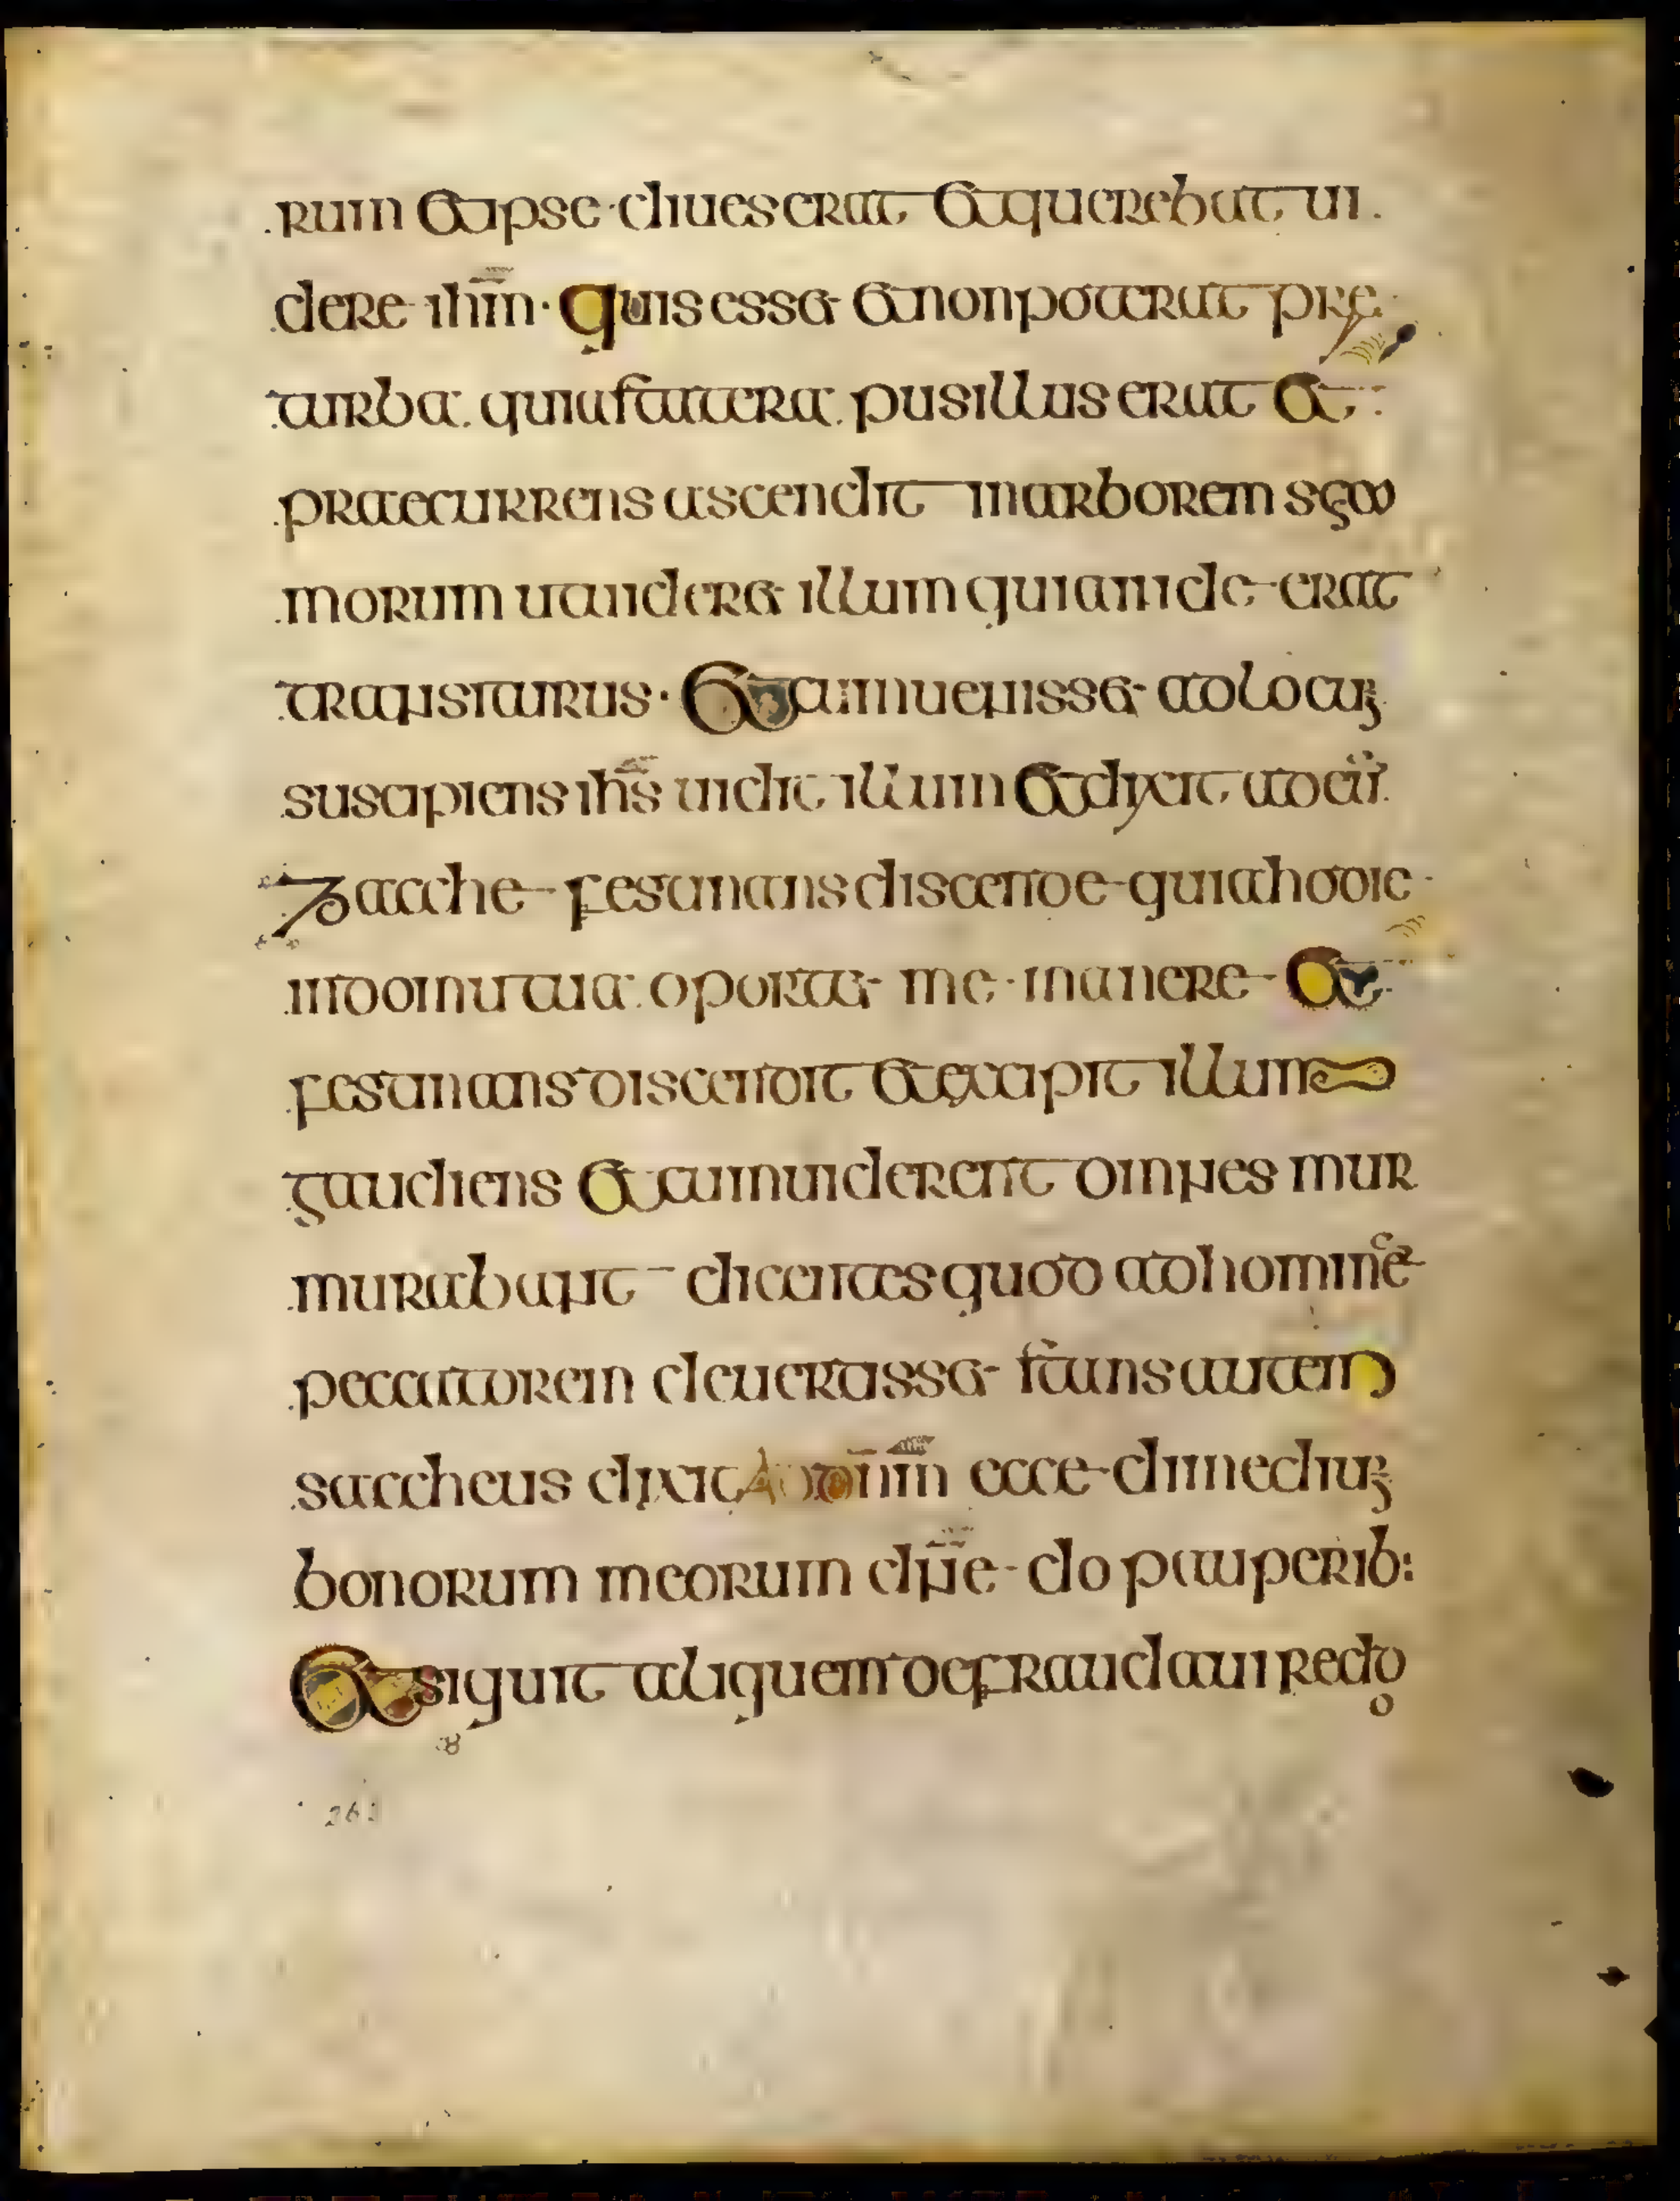 rum et ipse diues erat et querebat ui
dere ihm quis esset et non poterat pre
turba quia statera pusillus erat et
praecurrens ascendit in arborem syco
morum ut uideret illum quia inde erat
transiturus et cum uenisset ad locum
suscipiens ihs uidit illum et dixit ad eum
zacche festinans discende quia hodie
in domu tua oportet me manere et
festinans discendit et excipit illum
gaudiens et cum uiderent omnes mur
murabant dicentes quod ad homine
peccatorem deuertisset stans autem
saccheus dixit ad dnm ecce dimedium
bonorum meorum dne do pauperib:
et si quit aliquem defraudaui reddo